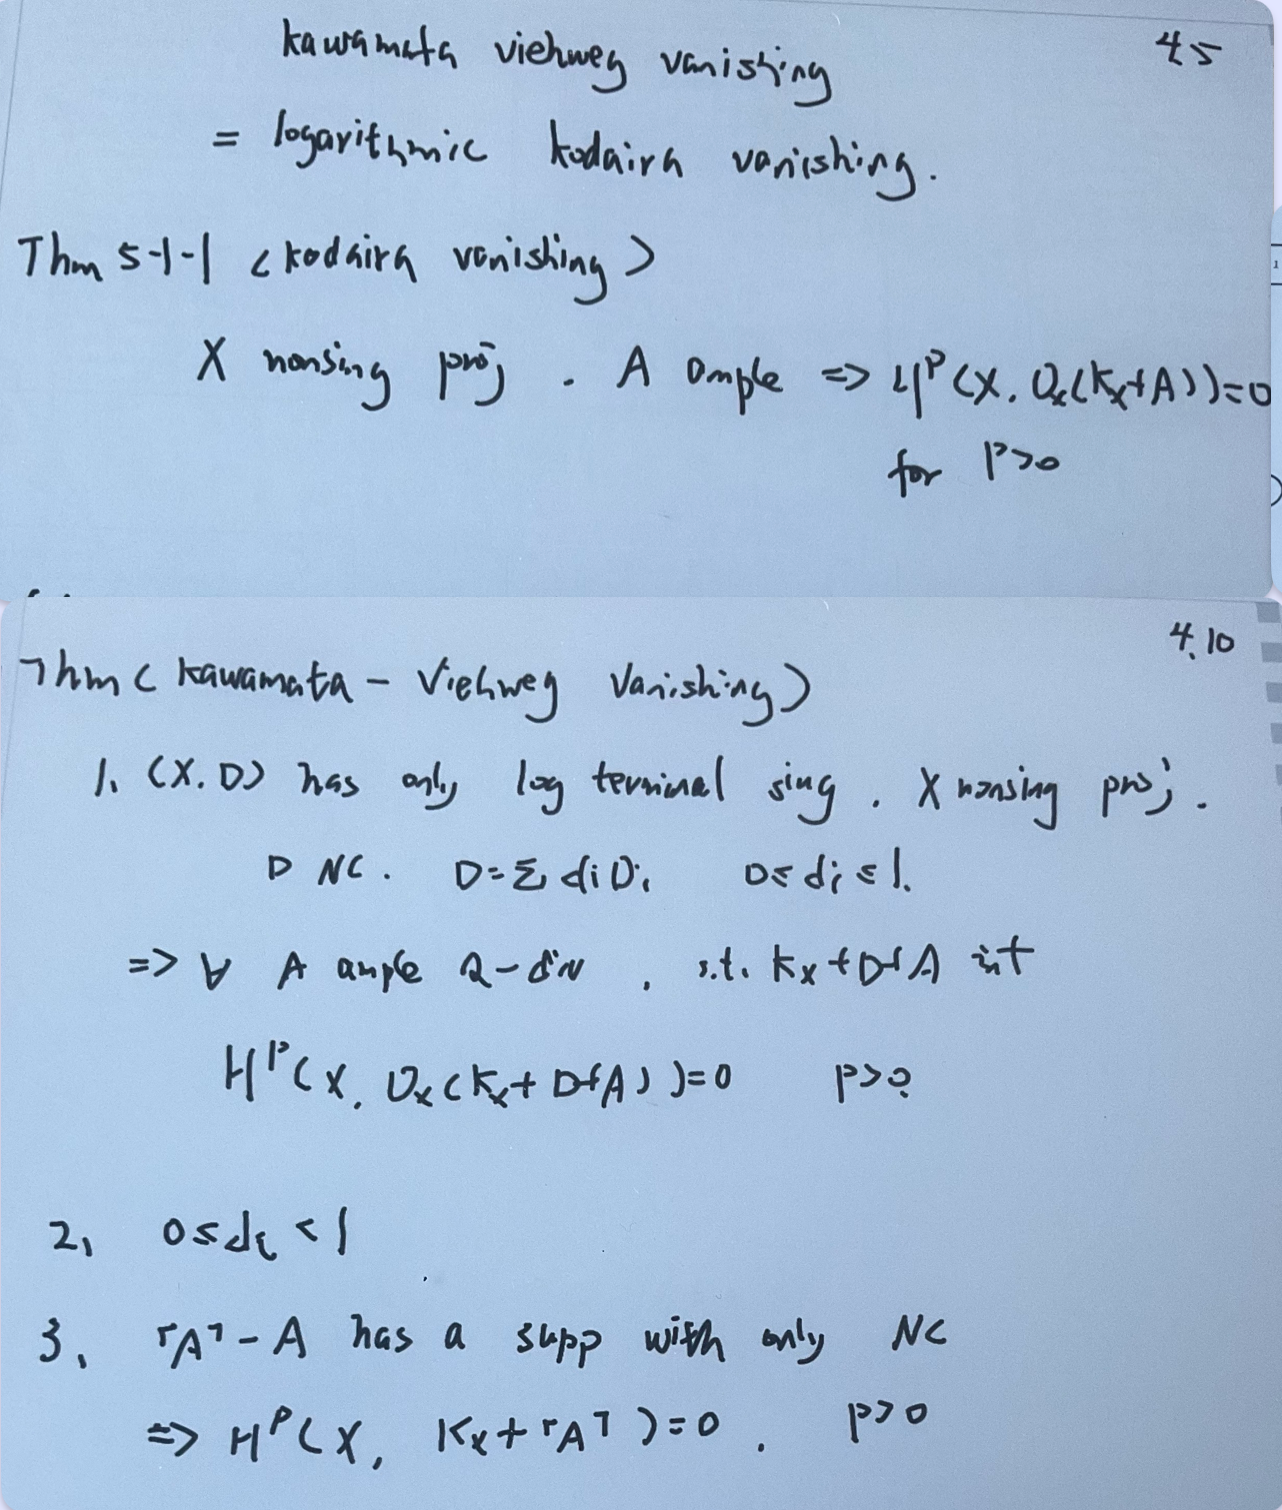 kawamata viehweg vanishing 45
= logarithmic kodaira vanishing.
Thm 5-1-1 < kodaira vanishing >
X nonsing proj . A ample => H^p(X. O_x(K_x+A))=0
for p>0
4.10
Thm ( Kawamata - Viehweg Vanishing)
1. (X.D) has only log terminal sing . X nonsing proj .
D NC . D=Σ diDi 0≤di≤1.
=> ∀ A ample Q-div , s.t. Kx+D+A int
H^p(X, O_x(K_x+D+A))=0 p>0
2, 0≤di<1
3, ⌜A⌝-A has a supp with only NC
=> H^p(X, Kx+⌜A⌝)=0 , p>0